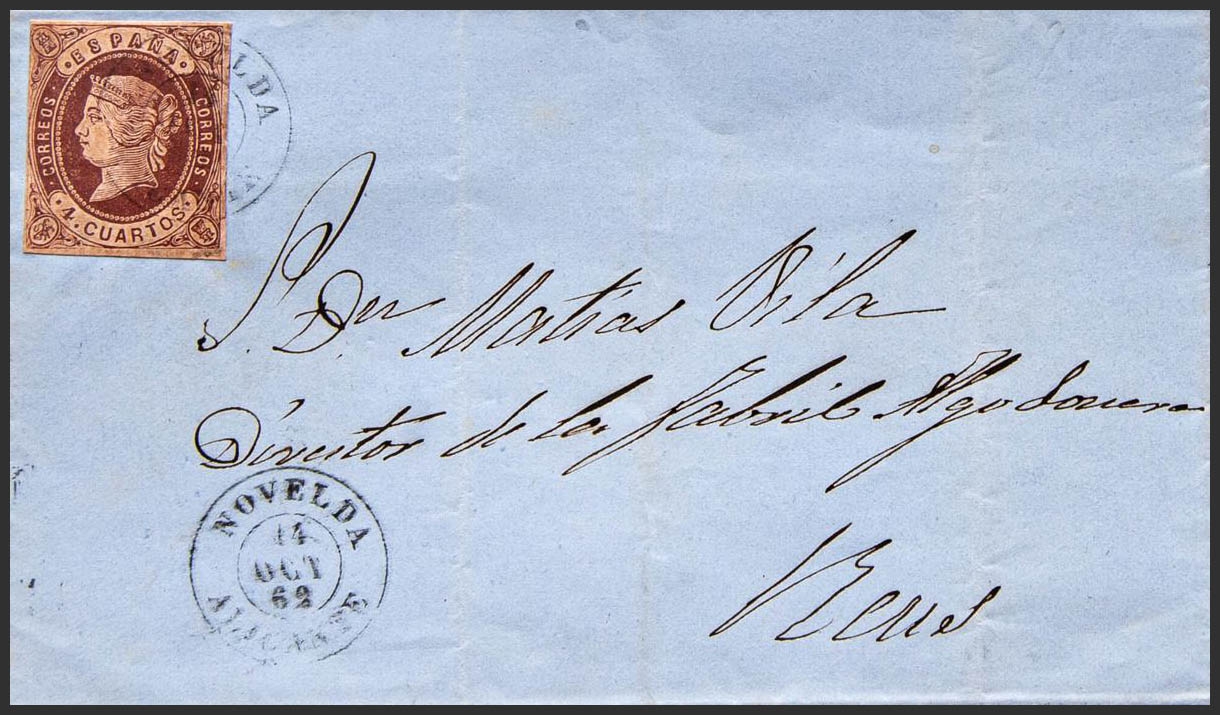 ESPAÑA
CORREOS
CORREOS
4. CUARTOS
LDA
S. D. Dn Matias Vila
Director de la Fabril Algodonera
Reus
NOVELDA
14
OCT
62
ALICANTE